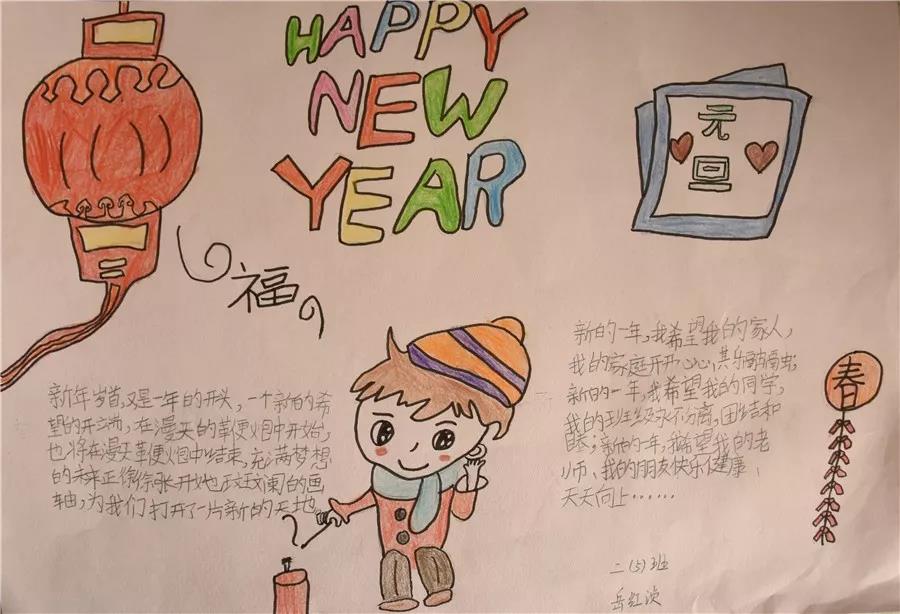 HAPPY
NEW
YEAR
元
旦
福
新年岁首,又是一年的开头,一个新的希
望的开端,在漫天的革便火因中开始,
也将在漫天革便火因中结束,充满梦想
的未来正像徐张开如也玟玟阑的画
轴,为我们打开了一片新的天地。
新的一年,我希望我的家人,
我的家庭开开心心,其乐融融;
新的一年,我希望我的同学,
我的班级永不分离,团结和
睦;新的一年,我希望我的老
师、我的朋友快乐健康、
天天向上……
春
二(5)班
岳红